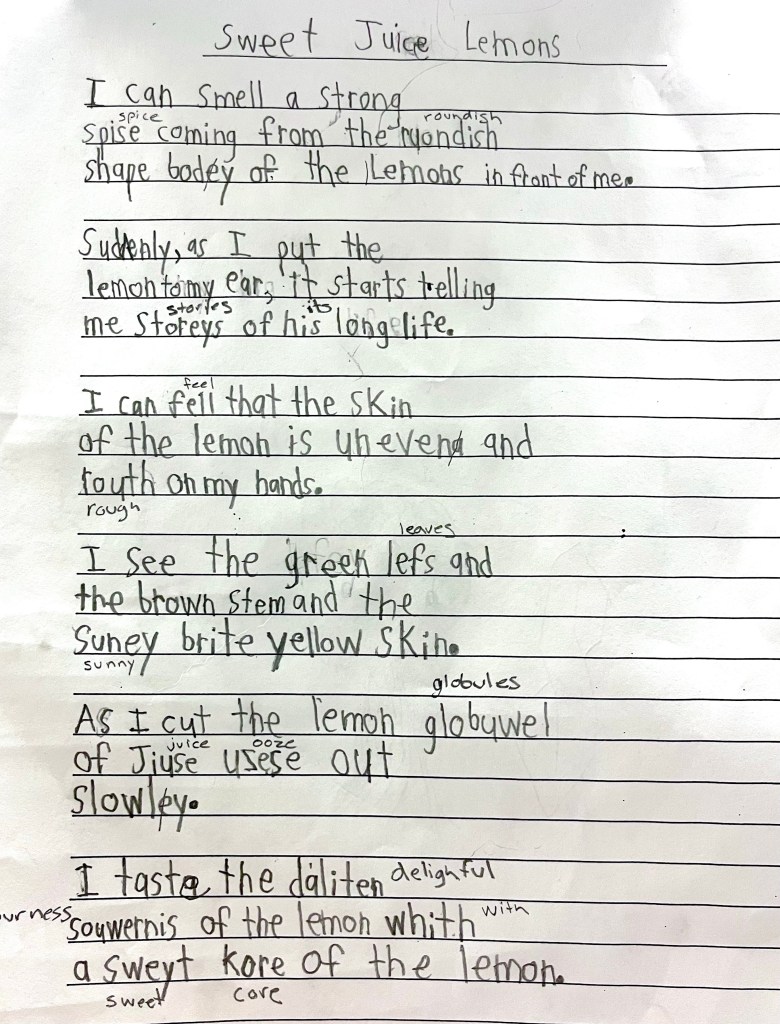 Sweet Juice Lemons
I can smell a strong
spice roundish
spise coming from the ruondish
shape bodey of the Lemons in front of me.
Suddenly, as I put the
lemon to my ear, it starts telling
stories its
me Storeys of his long life.
feel
I can fell that the skin
of the lemon is uneven and
routh on my hands.
rough
leaves
I see the green lefs and
the brown stem and the
Suney brite yellow skin.
sunny
globules
As I cut the lemon globuwel
juice ooze
of Jiuse usese out
Slowley.
I taste the daliten delighful
urness souwernis of the lemon whith with
a sweyt kore of the lemon.
sweet core